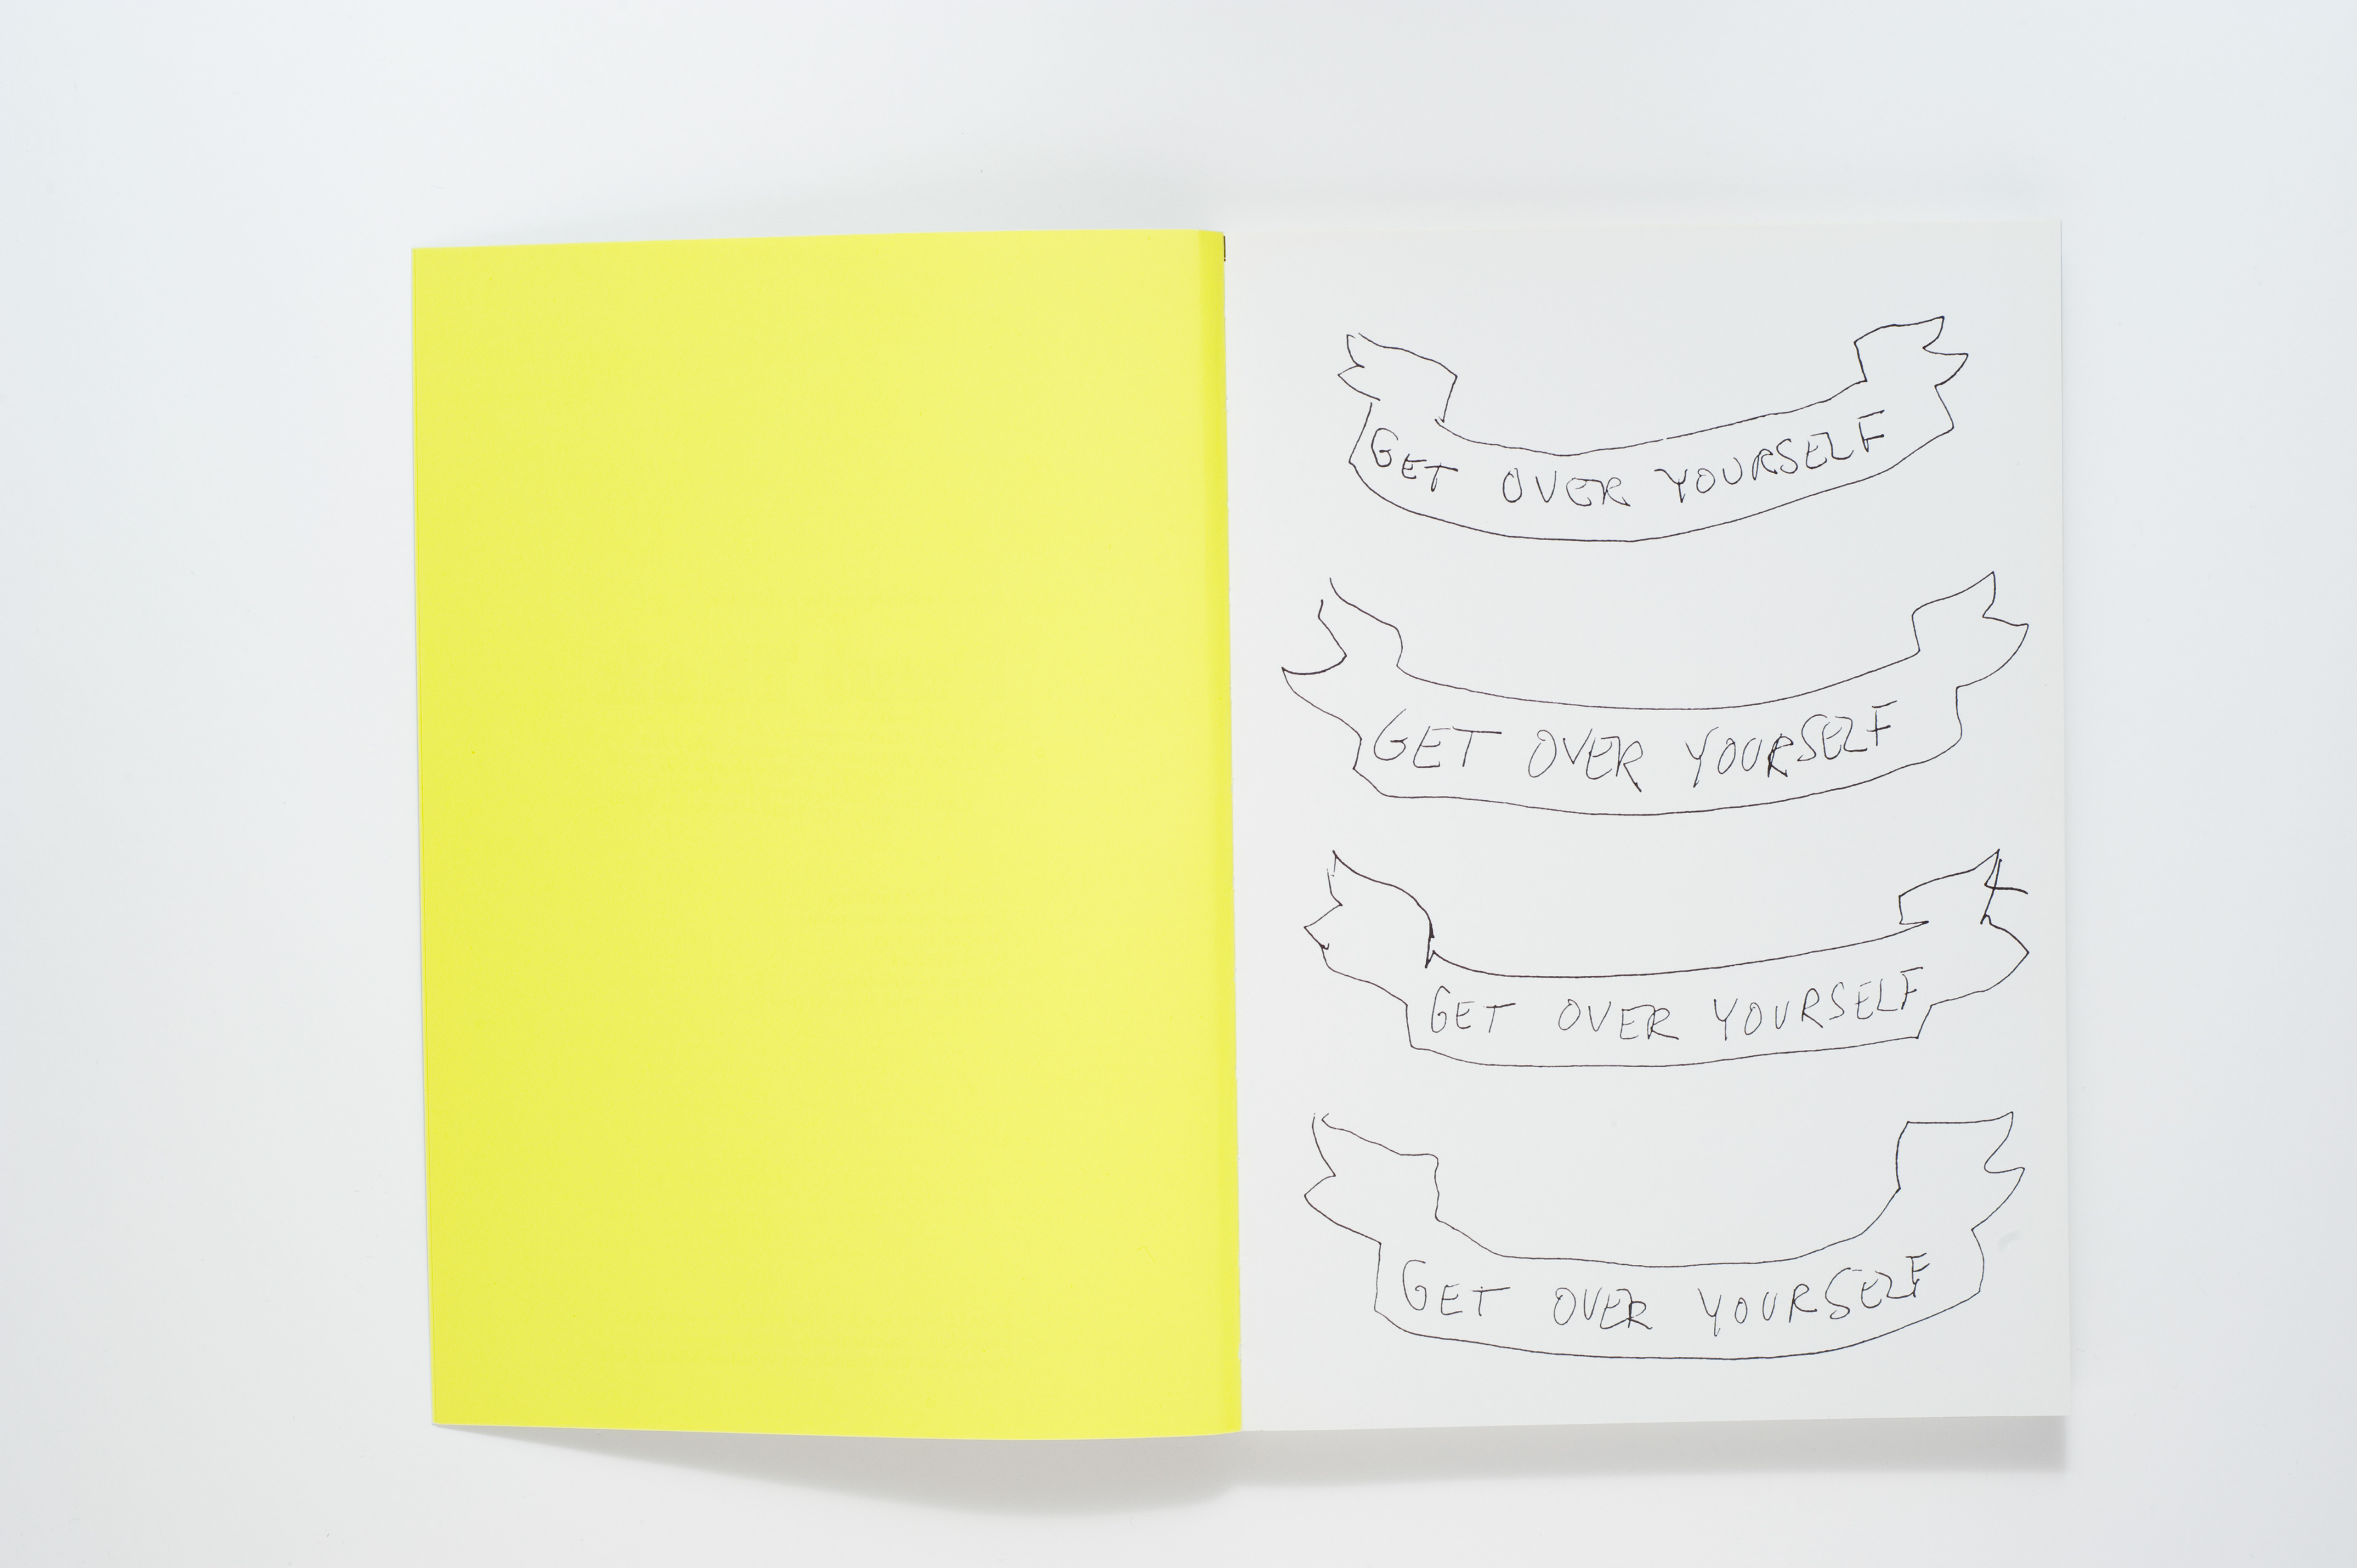 GET OVER YOURSELF
GET OVER YOURSELF
GET OVER YOURSELF
GET OVER YOURSELF